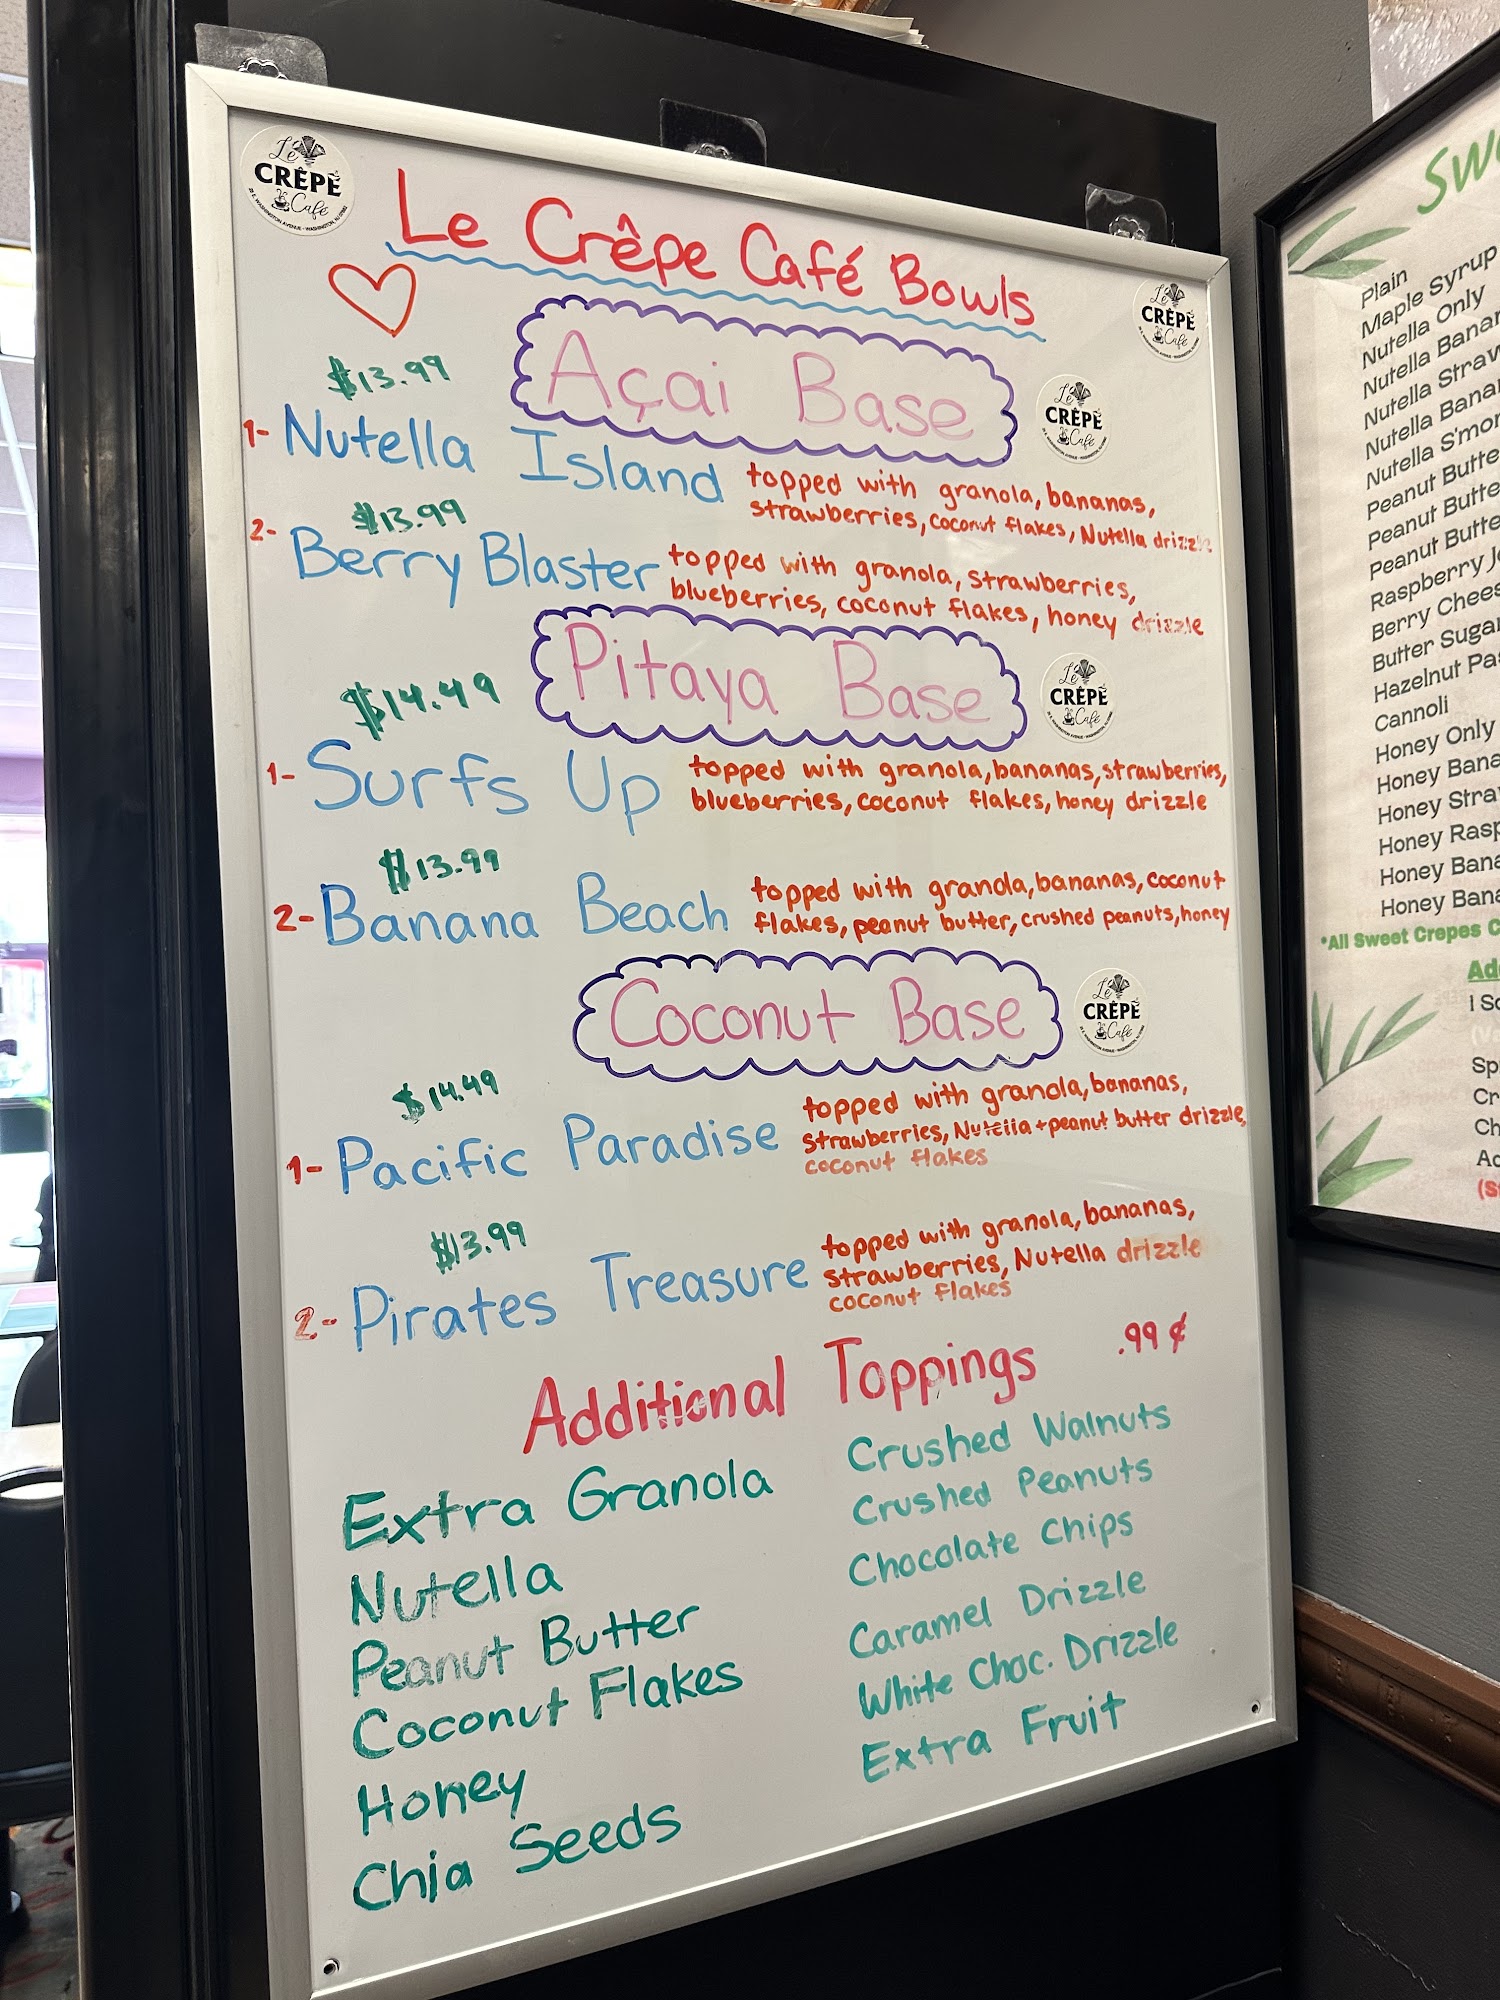 Le
CRÊPE
Café
Le Crêpe Café Bowls
Le
CRÊPE
Café
$13.99
Açai Base
Le
CRÊPE
Café
1- Nutella Island topped with granola, bananas,
strawberries, coconut flakes, Nutella drizzle
$13.99
2- Berry Blaster topped with granola, strawberries,
blueberries, coconut flakes, honey drizzle
$14.49
Pitaya Base
Le
CRÊPE
Café
1- Surfs Up topped with granola, bananas, strawberries,
blueberries, coconut flakes, honey drizzle
$13.99
2- Banana Beach topped with granola, bananas, coconut
flakes, peanut butter, crushed peanuts, honey
Coconut Base
Le
CRÊPE
Café
$14.49
1- Pacific Paradise topped with granola, bananas,
strawberries, Nutella + peanut butter drizzle,
coconut flakes
$13.99
2- Pirates Treasure topped with granola, bananas,
strawberries, Nutella drizzle
coconut flakes
Additional Toppings .99¢
Extra Granola
Nutella
Peanut Butter
Coconut Flakes
Honey
Chia Seeds
Crushed Walnuts
Crushed Peanuts
Chocolate Chips
Caramel Drizzle
White Choc. Drizzle
Extra Fruit
Plain
Maple Syrup
Nutella Only
Nutella
Nutella
Nutella
Nutella
Peanut
Peanut
Peanut
Raspberry
Berry
Butter
Hazelnut
Cannoli
Honey Only
Honey
Honey
Honey
Honey
Honey
*All Sweet Crepes